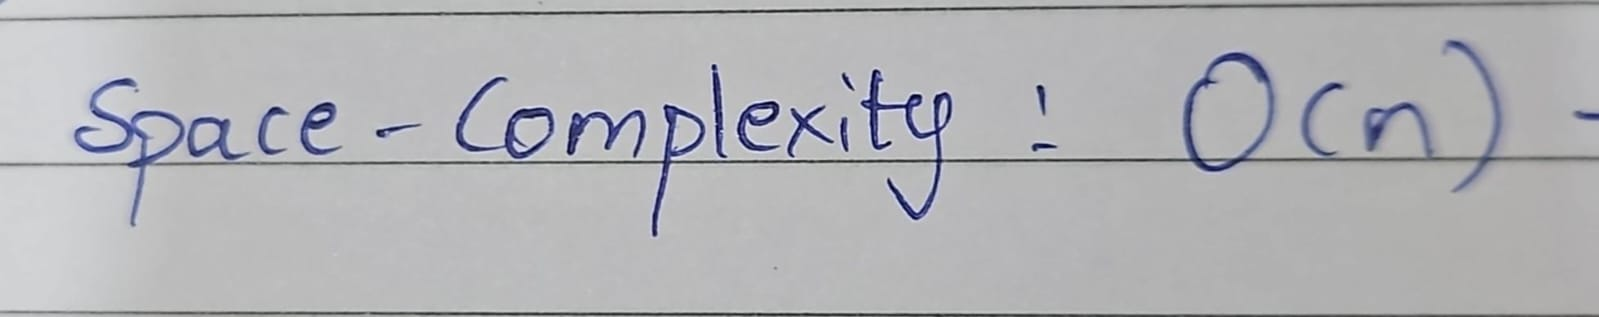 Space-Complexity : O(n) -